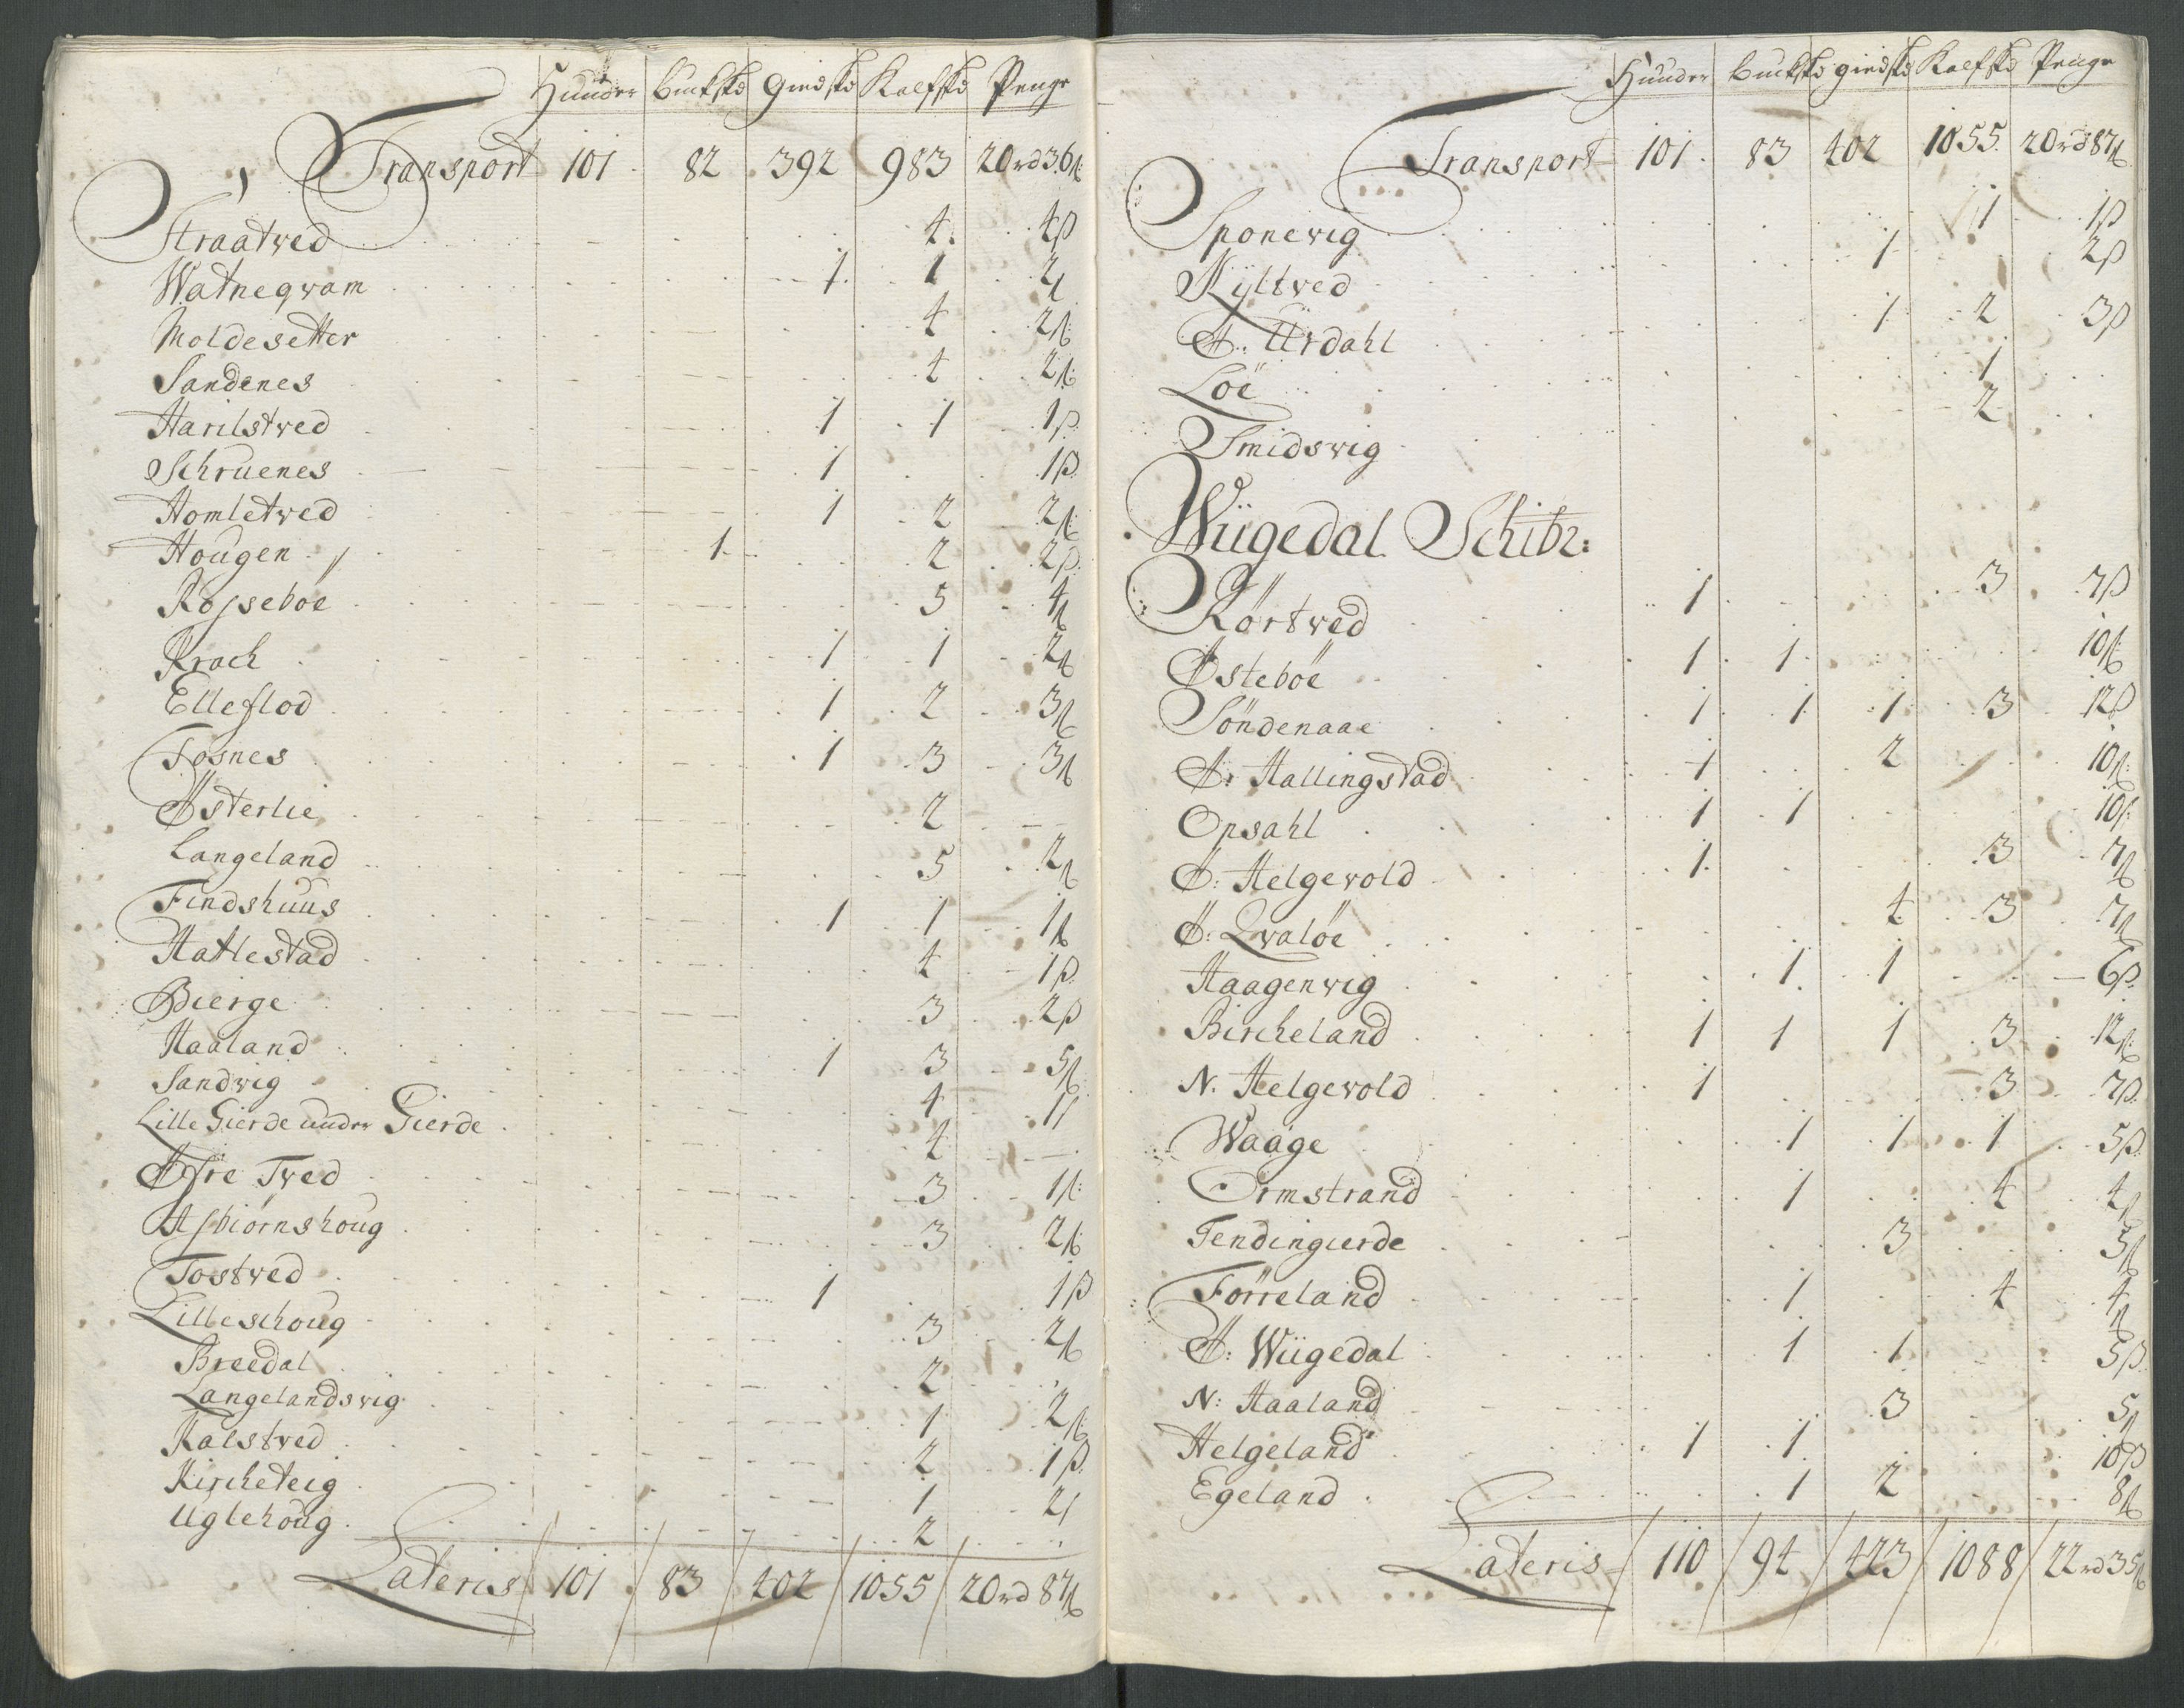 Huuder Buckskd Giedskd Kalfskd Penge
Transport 101 82 392 983 20rd 36ß
Straatved 4 4ß
Watneqvam 1 1 2ß
Moldesetter 4 2ß
Sandenes 4 2ß
Harilstved 1 1 1ß
Schruenes 1 1ß
Homletved 1 2 2ß
Hougen 1 2 2ß
Røjseboe 5 4ß
Krach 1 1 2ß
Elleflod 1 2 3ß
Fosnes 1 3 3ß
Østerlie 2
Langeland 5 2ß
Findshuus 1 1 1ß
Hatlestad 4 1ß
Bierge 3 2ß
Haaland 1 3 5ß
Sandvig 4 1ß
Lille Gierde under Gierde 4
Øfre Tved 3 1ß
Asbiørnshoug 3 2ß
Tostved 1 1ß
Lilleschoug 3 2ß
Breedal 2
Langelandsvig 1 2ß
Kalstved 2 1ß
Kircheteig 1 2ß
Uglehoug 2
Lateris 101 83 402 1055 20rd 87ß
Huuder Buckskd Giedskd Kalfskd Penge
Transport 101 83 402 1055 20rd 87ß
Sponevig 1 1ß
Kyltved 1 2ß
Ø: Urdahl 1 2 3ß
Loe 1
Smidsvig 2
Wiigedal Schibr:
Rørtved 1 3 7ß
Østebøe 1 1 10ß
Søndenaae 1 1 1 3 12ß
Ø: Hallingstad 1 2 10ß
Opsahl 1 1 10ß
Ø: Helgevold 1 3 7ß
Ø: Qvaløe 4 3 7ß
Haagenvig 1 1 6ß
Bircheland 1 1 1 3 12ß
N. Helgevold 1 3 7ß
Waage 1 1 1 5ß
Ormstrand 1 4 4ß
Tendingierde 3 3ß
Førreland 1 4 4ß
Ø: Wiigedal 1 1 5ß
N: Haaland 3 5ß
Helgeland 1 1 10ß
Egeland 1 2 8ß
Lateris 110 94 423 1088 22rd 35ß